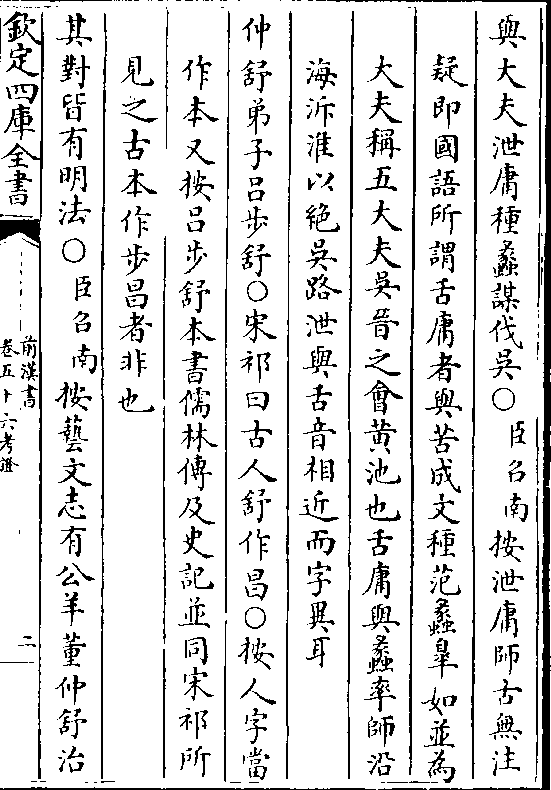 與大夫泄庸種蠡謀伐吳○臣召南按泄庸師古無注
疑即國語所謂舌庸者與苦成文種范蠡皐如並為
大夫稱五大夫吳晉之會黃池也舌庸與蠡率師沿
海泝淮以絶吳路泄與舌音相近而字異耳
仲舒弟子吕步舒○宋祁曰古人舒作昌○按人字當
作本又按吕步舒本書儒林傳及史記並同宋祁所
見之古本作步昌者非也
其對皆有明法○臣召南按藝文志有公羊董仲舒治
欽定四庫全書
前漢書
卷五十六考證
二